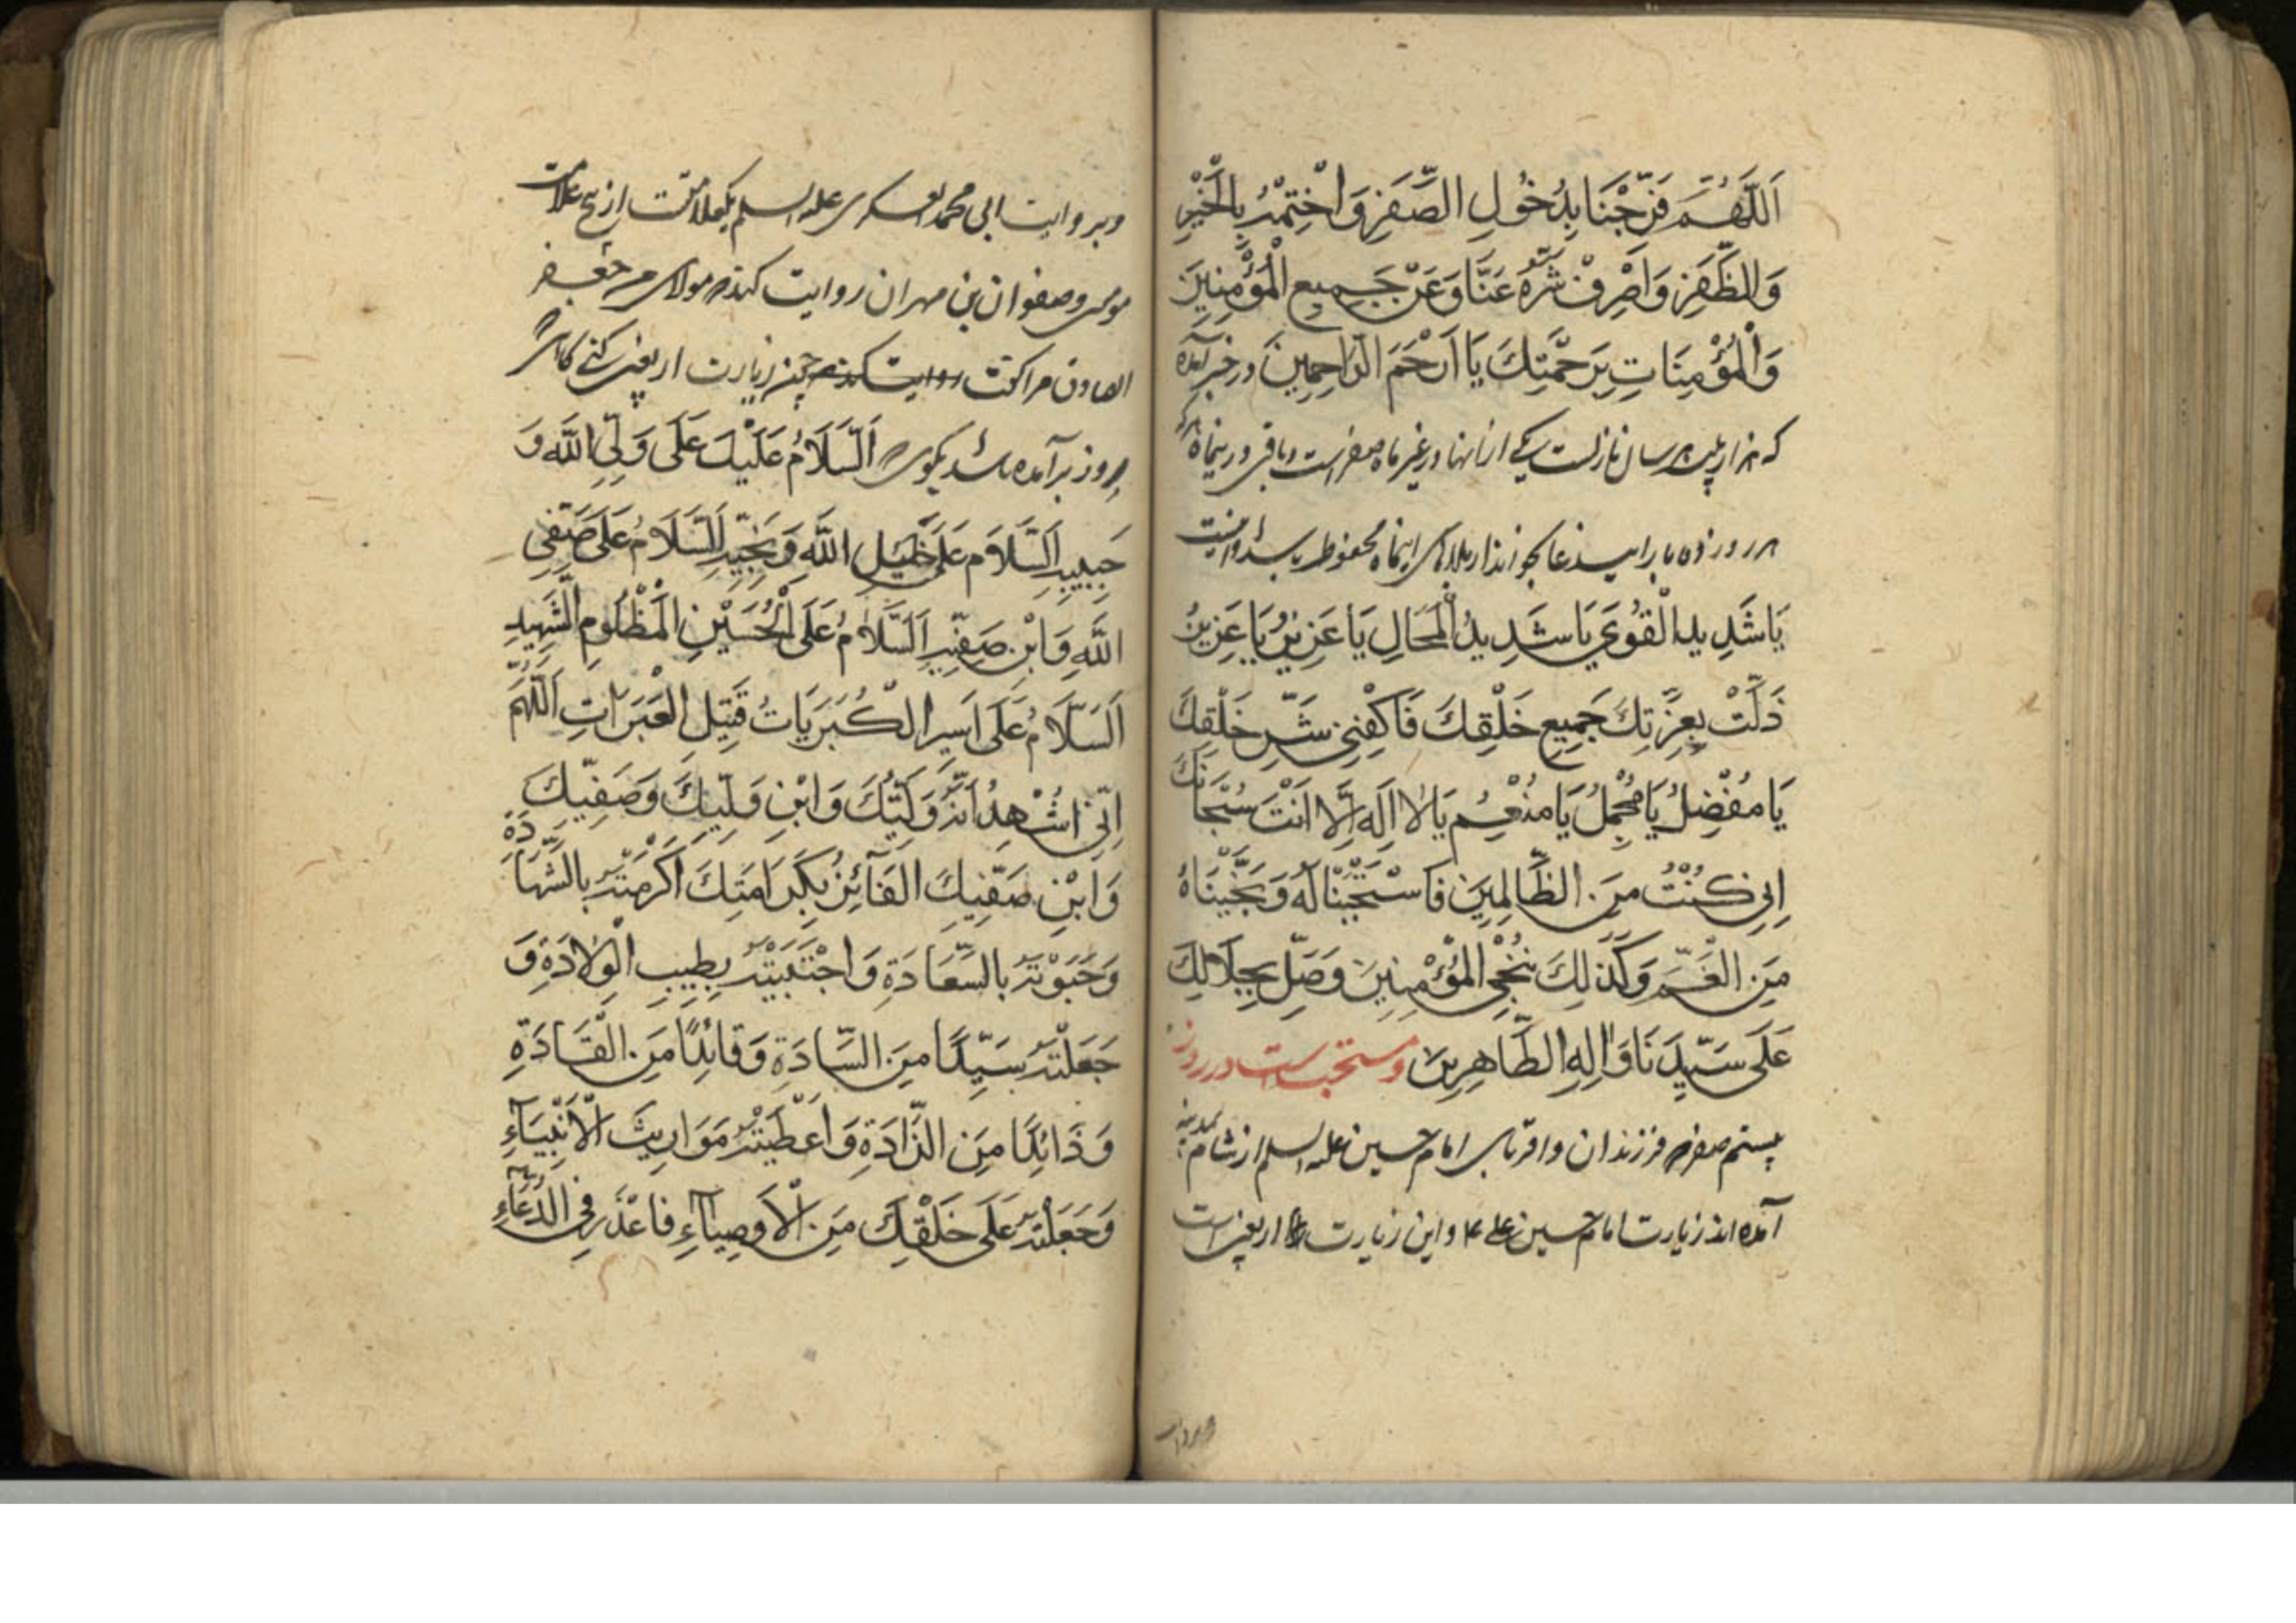 اَللّٰهُمَّ فَرِّجْنَا بِدُخُولِ الصَّفَرِ وَاخْتِمْهُ بِالْخَيْرِ
وَالظَّفَرِ وَاصْرِفْ شَرَّهُ عَنَّا وَعَنْ جَمِيعِ الْمُؤْمِنِينَ
وَالْمُؤْمِنَاتِ بِرَحْمَتِكَ يَا اَرْحَمَ الرَّاحِمِينَ در خبر آمده
که هزار بلیه هر سال نازلست یکی از آنها در غیر ماه صفر است و باقی در ینماه
هر روز ده بار این دعا بخواند از بلاهای اینماه محفوظ باشد
يَا شَدِيدَ الْقُوٰي يَا شَدِيدُ الْمَحَالِ يَا عَزِيزُ يَا عَزِيزُ
ذَلَّتْ بِعِزَّتِكَ جَمِيعِ خَلْقِكَ فَاكْفِنِي شَرِّ خَلْقِكَ
يَا مُفْضِلُ يَا مُجْمِلُ يَا مُنْعِمُ يَا لَا اِلٰهَ اِلَّا اَنْتَ سُبْحَانَكَ
اِنِي كُنْتُ مِنَ الظَّالِمِينَ فَاسْتَجَبْنَا لَهُ وَنَجَّيْنَاهُ
مِنَ الْغَمِّ وَكَذٰلِكَ نُنْجِي الْمُؤْمِنِينَ وَصَلِّ بِجَلَالِكَ
عَلَى سَيِّدِنَا وَاٰلِهِ الطَّاهِرِينَ و مستحب است در روز
بیستم صفر فرزندان و اقربای امام حسین علیه السلم از شام بمدینه
آمده اند زیارت امام حسین ع و این زیارت اربعین است
و بروایت ابی محمد العسکری علیه السلم یکعلامتست از پنج علامت
مومن و صفوان بن مهران روایت کنند مولای من جعفر
الصادق مرا گفت روایت کند چون زیارت اربعین کنی
روز بر آمده باشد بگوی اَلسَّلَامُ عَلَيْكَ عَلَى وَلِيِّ اللّٰهِ وَ
حَبِيبِهِ اَلسَّلَام عَلَى خَلِيلِ اللّٰهِ وَنَجِيبِهِ اَلسَّلَامُ عَلَى صَفِيِّ
اللّٰهِ وَابْنِ صَفِيِّهِ اَلسَّلَامُ عَلَى الْحُسَيْنِ الْمَظْلُومِ الشَّهِيدِ
اَلسَّلَامُ عَلَى اَسِيرِ الْكُرَبَاتُ قَتِيلِ الْعَبَرَاتِ اَللّٰهُمَّ
اِنِّي اَشْهَدُ اَنَّهُ وَلِيُّكَ وَابْنِ وَلِيِّكَ وَصَفِيِّكَ
وَابْنِ صَفِيِّكَ الْفَآئِزُ بِكَرَامَتِكَ اَكْرَمْتَهُ بِالشَّهَادَةِ
وَحَبَوْتَهُ بِالسَّعَادَةِ وَاجْتَبَيْتَهُ بِطِيبِ الْوِلَادَةِ وَ
جَعَلْتَهُ سَيِّدًا مِنَ السَّادَةِ وَقَائِدًا مِنَ الْقَادَةِ
وَذَائِدًا مِنَ الذَّادَةِ وَاَعْطَيْتَهُ مَوَارِيثَ الْاَنْبِيَآءِ
وَجَعَلْتَهُ عَلَى خَلْقِكَ مِنَ الْاَوْصِيَآءِ فَاعْذَرَ فِي الدُّعَآءِ